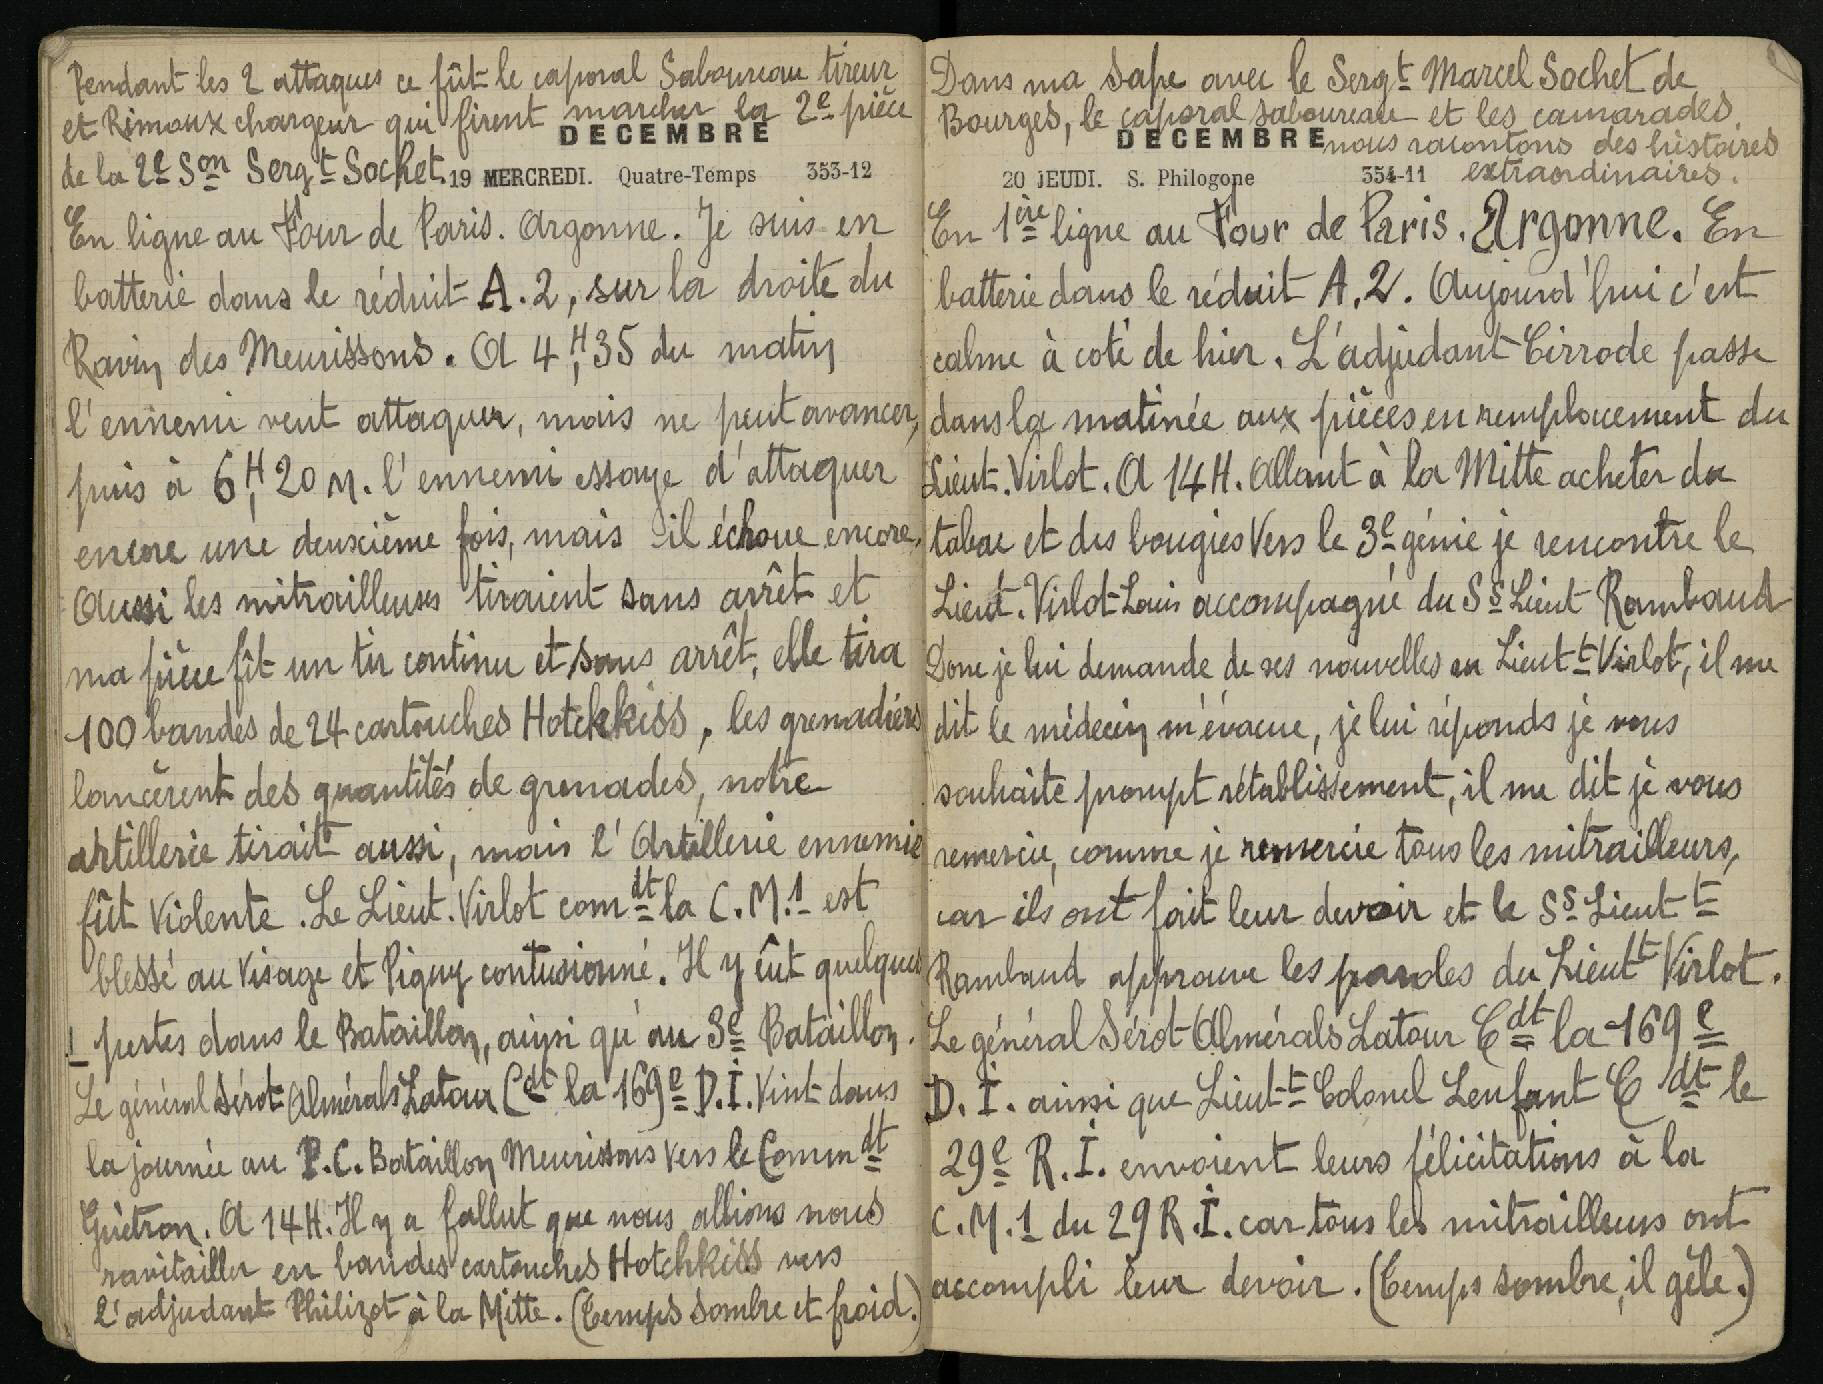 Pendant les 2 attaques ce fût le caporal Saboureau tireur
et Rimoux chargeur qui firent marcher la 2e pièce
DECEMBRE
de la 2e Son Sergt Sochet.
19 MERCREDI. Quatre-Temps 353-12
En ligne au Four de Paris. Argonne. Je suis en
batterie dans le réduit A.2, sur la droite du
Ravin des Meurissons. A 4H,35 du matin
l'ennemi veut attaquer, mais ne peut avancer,
puis à 6H,20 M. l'ennemi essaye d'attaquer
encore une deuxième fois, mais il échoue encore.
Aussi les mitrailleuses tiraient sans arrêt et
ma pièce fît un tir continu et sans arrêt, elle tira
100 bandes de 24 cartouches Hotchkiss, les grenadiers
lancèrent des quantités de grenades, notre
artillerie tirait aussi, mais l'Artillerie ennemie
fût violente. Le Lieut. Virlot comdt la C.M.1 est
blessé au visage et Pigny contusionné. Il y eût quelques
pertes dans le Bataillon, ainsi qu'au 3e Bataillon.
Le général Sérot Almérals Latour Cdt la 169e D.I. vint dans
la journée au P.C. Bataillon Meurissons vers le Commdt
Guétron. A 14H. Il y a fallut que nous allions nous
ravitailler en bandes cartouches Hotchkiss vers
l'adjudant Philizot à la Mitte. (Temps sombre et froid.)
Dans ma sape avec le Sergt Marcel Sochet de
Bourges, le caporal Saboureau et les camarades,
DECEMBRE nous racontons des histoires
20 JEUDI. S. Philogone 354-11 extraordinaires.
En 1ère ligne au Four de Paris. Argonne. En
batterie dans le réduit A.2. Aujourd'hui c'est
calme à coté de hier. L'adjudant Cirrode passe
dans la matinée aux pièces en remplacement du
Lieut. Virlot. A 14H. Allant à la Mitte acheter du
tabac et des bougies vers le 3e génie je rencontre le
Lieut. Virlot Louis accompagné du Ss Lieut Rambaud
Donc je lui demande de ses nouvelles au Lieutt Virlot, il me
dit le médecin m'évacue, je lui réponds je vous
souhaite prompt rétablissement, il me dit je vous
remercie, comme je remercie tous les mitrailleurs,
car ils ont fait leur devoir et le Ss Lieutt
Rambaud approuve les paroles du Lieutt Virlot.
Le général Sérot Almérals Latour Cdt la 169e
D.I. ainsi que Lieutt Colonel Lenfant Cdt le
29e R.I. envoient leurs félicitations à la
C.M.1 du 29 R.I. car tous les mitrailleurs ont
accompli leur devoir. (Temps sombre, il gèle.)